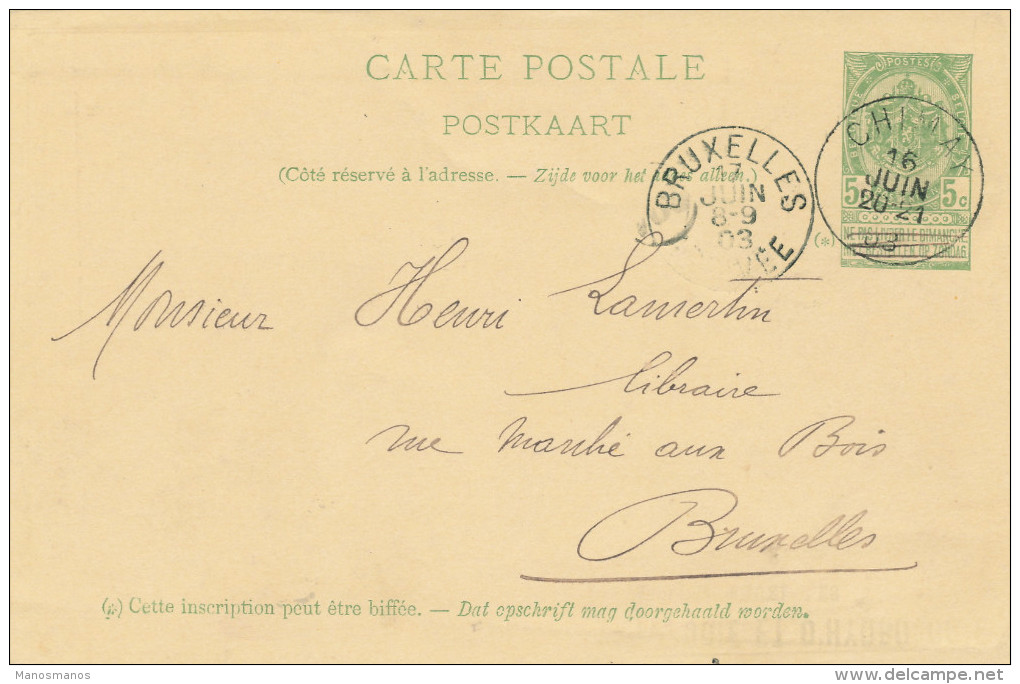 CARTE POSTALE
POSTKAART
(Côté réservé à l'adresse. — Zijde voor het alleen.)
POSTES
5 5c
CHIMAY
16
JUIN
20-21
03
BRUXELLES
17
JUIN
8-9
03
(*)
NE PAS LIVRER LE DIMANCHE
NIET BESTELLEN OP ZONDAG
Monsieur Henri Lamertin
libraire
rue Marché aux Bois
Bruxelles
(*) Cette inscription peut être biffée. — Dat opschrift mag doorgehaald worden.
Manosmanos
delcampe.net